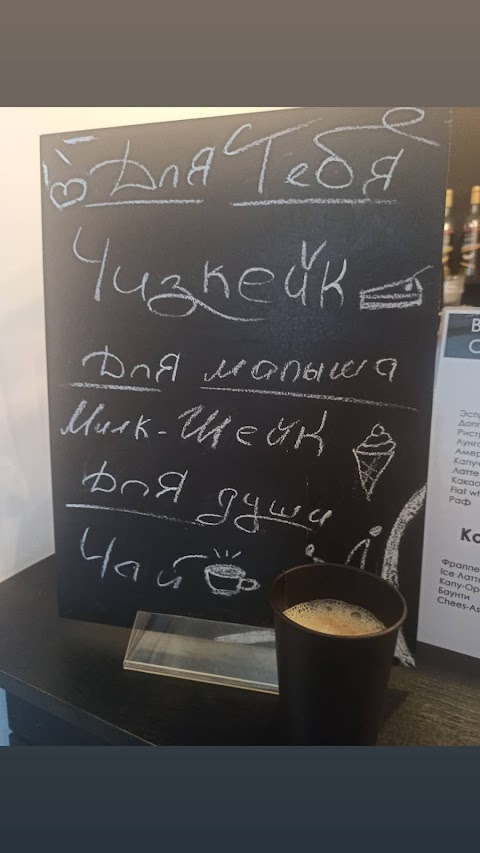 Для Тебя
Чизкейк
Для малыша
Милк-Шейк
Для души
Чай
Эспр
Допп
Ристр
Лунго
Амер
Капуч
Латте
Какао
Flat wh
Раф
Ко
Фраппе
Ice Латте
Капу-Ор
Баунти
Chees-As